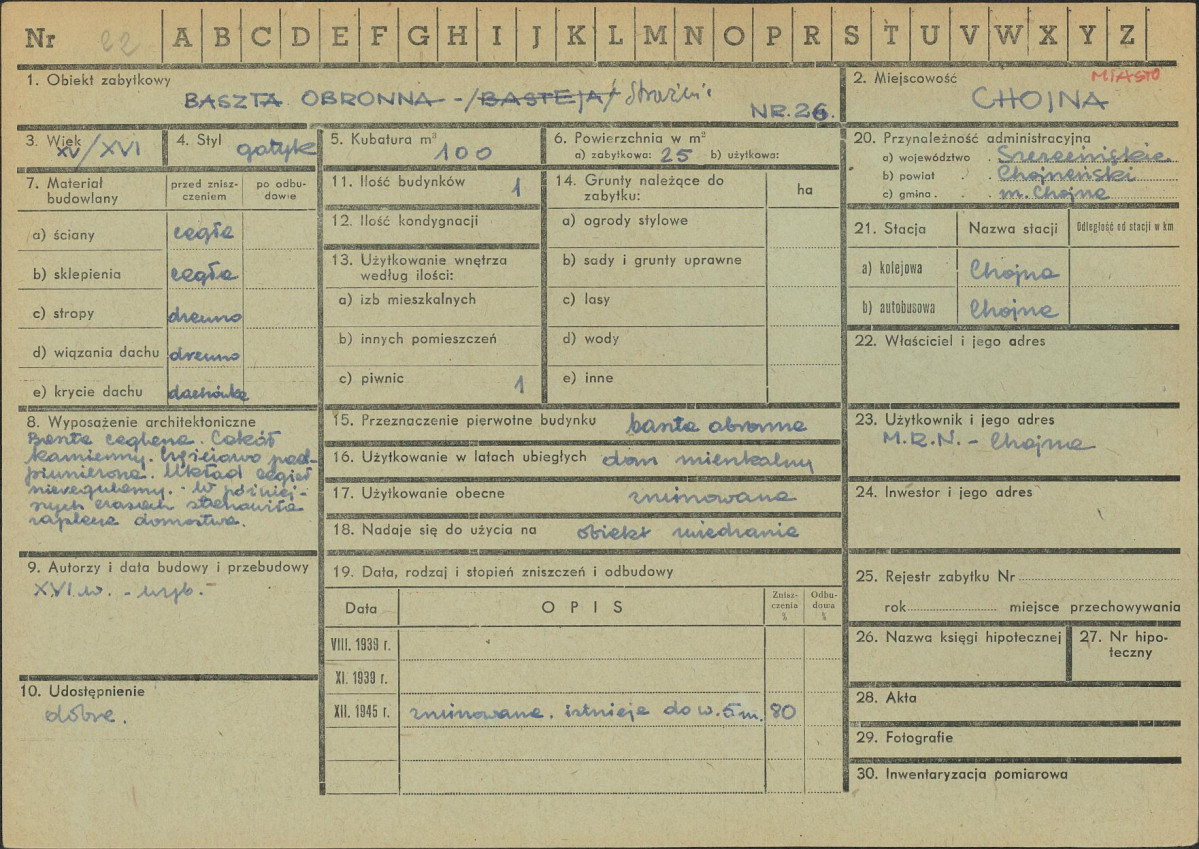 Nr 22 A B C D E F G H I J K L M N O P R S T U V W X Y Z
1. Obiekt zabytkowy
BASZTA OBRONNA - /BASTEJA/
NR. 26.
2. Miejscowość
MIASTO
CHOJNA
3. Wiek
XV/XVI
4. Styl gotyk
5. Kubatura m³
100
6. Powierzchnia w m²
a) zabytkowa: 25 b) użytkowa:
7. Materiał budowlany
przed zniszczeniem
po odbudowie
a) ściany cegła
b) sklepienia cegła
c) stropy drewno
d) wiązania dachu drewno
e) krycie dachu dachówka
8. Wyposażenie architektoniczne
Baszta ceglana. Cokół
kamienny. Częściowo pod-
piwniczona. Układ cegieł
nieregularny. - W późniejszych czasach stanowiła
zaplecze domostwa.
9. Autorzy i data budowy i przebudowy
XVI w. - wyb. -
10. Udostępnienie
dobre.
11. Ilość budynków 1
12. Ilość kondygnacji
13. Użytkowanie wnętrza
według ilości:
a) izb mieszkalnych
b) innych pomieszczeń
c) piwnic 1
14. Grunty należące do
zabytku:
ha
a) ogrody stylowe
b) sady i grunty uprawne
c) lasy
d) wody
e) inne
15. Przeznaczenie pierwotne budynku baszta obronna
16. Użytkowanie w latach ubiegłych dom mieszkalny
17. Użytkowanie obecne zrujnowana
18. Nadaje się do użycia na obiekt zwiedzania
19. Data, rodzaj i stopień zniszczeń i odbudowy
Data OPIS Zniszczenia % Odbudowa %
VIII. 1939 r.
XI. 1939 r.
XII. 1945 r. zrujnowana. istnieje do w. 5 m. 80
20. Przynależność administracyjna
a) województwo Szczecińskie
b) powiat Chojneński
c) gmina m. Chojna
21. Stacja Nazwa stacji Odległość od stacji w km
a) kolejowa Chojna
b) autobusowa Chojna
22. Właściciel i jego adres
23. Użytkownik i jego adres
M.R.N. - Chojna
24. Inwestor i jego adres
25. Rejestr zabytku Nr
rok miejsce przechowywania
26. Nazwa księgi hipotecznej
27. Nr hipoteczny
28. Akta
29. Fotografie
30. Inwentaryzacja pomiarowa